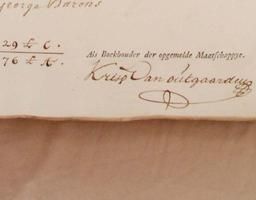 George Barons
29 £ C.
76 £ A.
Als Boekhouder der opgemelde Maatschappye.
Van outgaarden